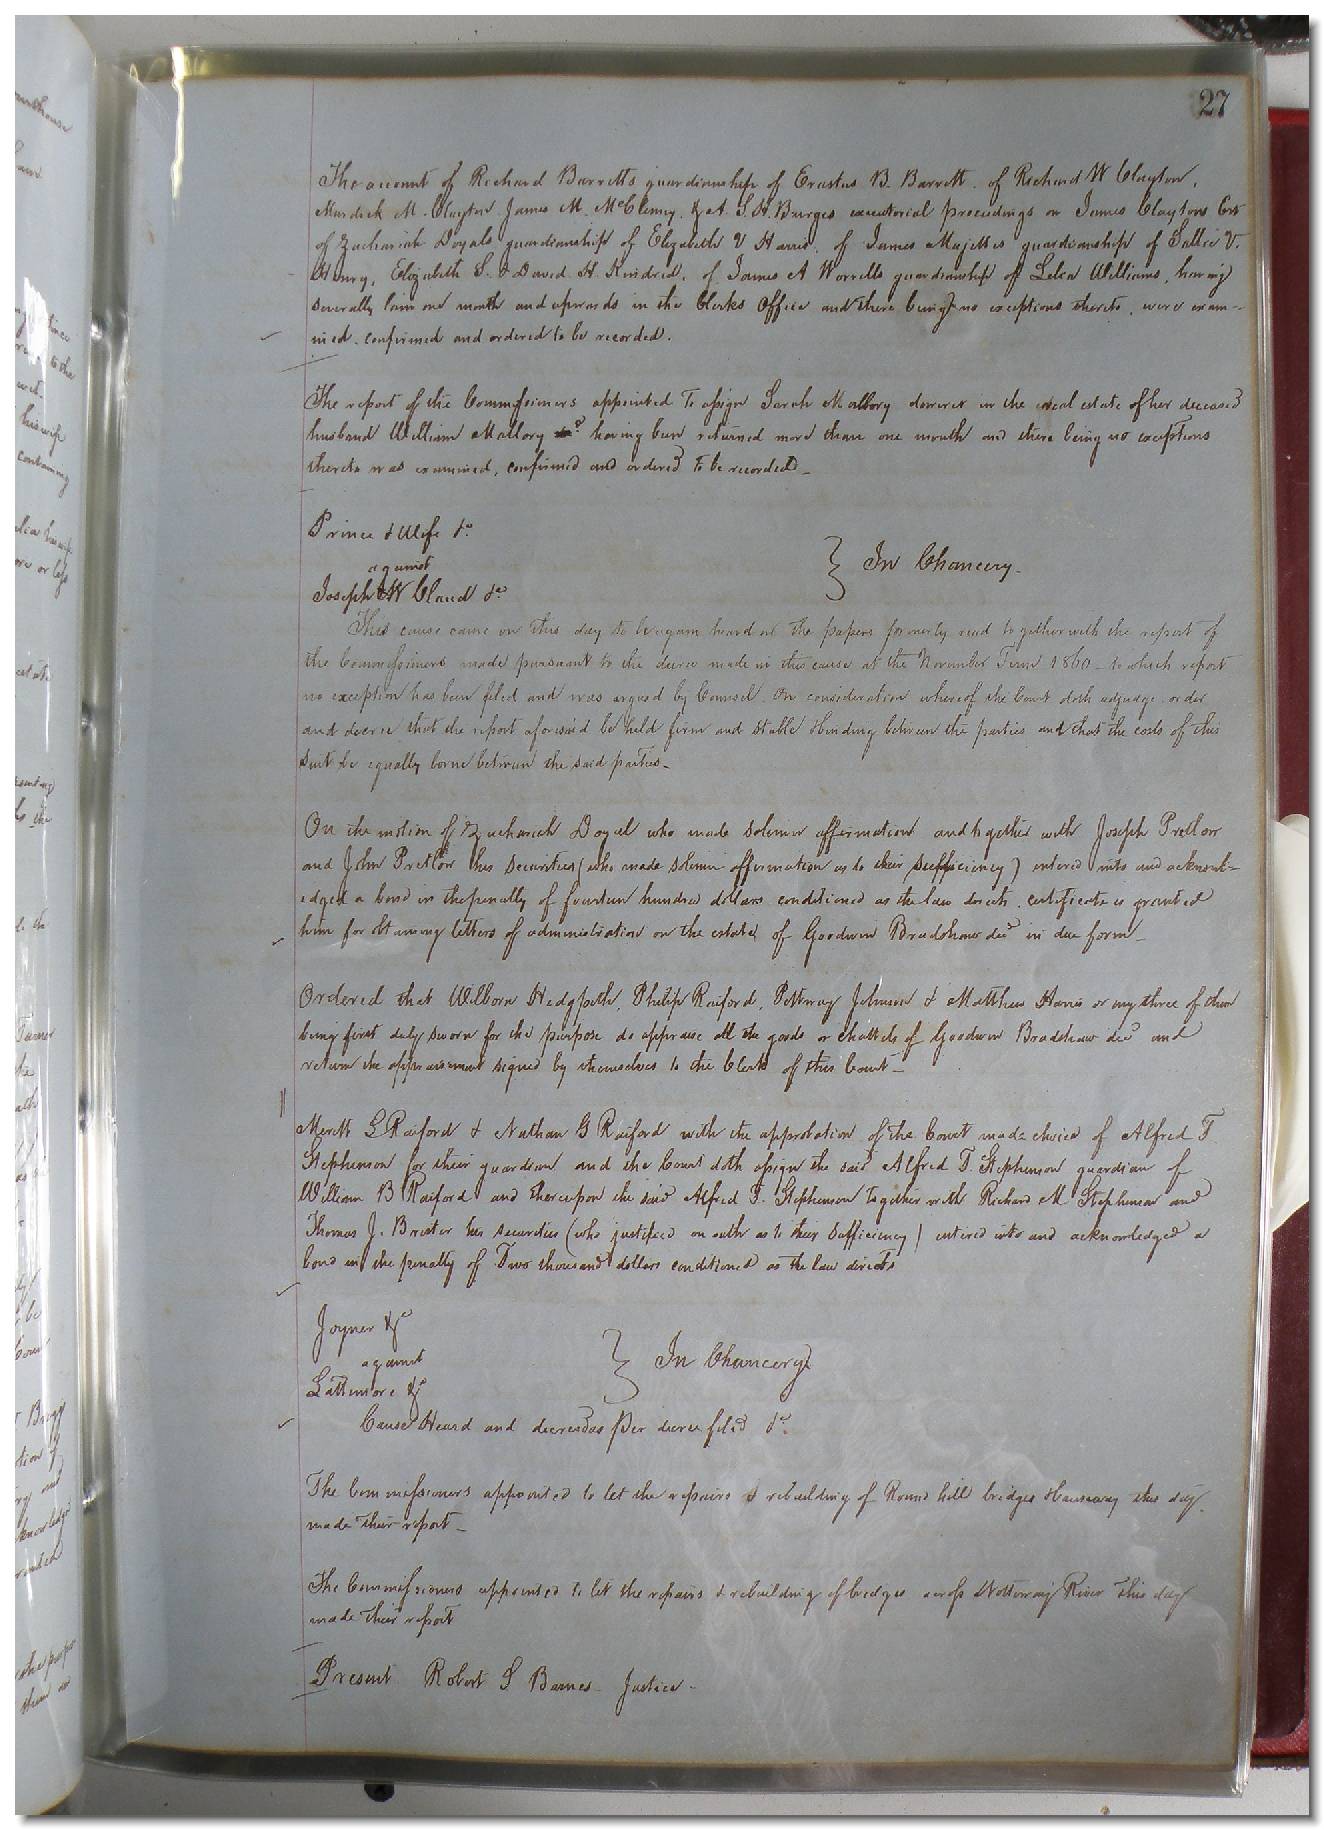 27
The account of Richard Barretts guardianship of Erastus B. Barrett. of Richard W Clayton,
Murdick M. Clayton James M. McClenny, & A. S. H. Burges executorial proceedings on James Claytons Est
of Zachariah Doyals guardianship of Elizabeth V Harris, of James Majettes guardianship of Sallie V.
Henry, Elizabeth S. & David H. Kindred, of James A Worrells guardianship of Lelia Williams, having
severally lain one month and upwards in the Clerks Office and there being no exceptions thereto, were exam-
ined. confirmed and ordered to be recorded.
The report of the Commissioners appointed to assign Sarah Mallory dower in the real estate of her deceased
husband William Mallory having been returned more than one month and there being no exceptions
thereto was examined, confirmed and ordered to be recorded_
Prince & Wife &c
against
Joseph W Claud &c
} In Chancery.
This cause came on this day to be again heard on the papers formerly read together with the report of
the Commissioners made pursuant to the decree made in this cause at the November Term 1860_ to which report
no exception has been filed and was argued by Counsel. On consideration whereof the Court doth adjudge, order
and decree that the report aforesaid be held firm and stable & binding between the parties and that the costs of this
Suit be equally borne between the said parties_
On the motion of Zachariah Doyel who made solemn affirmation and together with Joseph Pretlow
and John Pretlow his securities (who made solemn affirmation as to their sufficiency) entered into and acknowl-
edged a bond in the penalty of fourteen hundred dollars conditioned as the law directs, certificate is granted
him for obtaining letters of administration on the estate of Goodwin Bradshaw decd in due form_
Ordered that Wilborn Hedgpeth, Philip Raiford, Pettway Johnson & Matthew Harris or any three of them
being first duly sworn for the purpose do appraise all the goods or chattels of Goodwin Bradshaw decd and
return the appraisement signed by themselves to the Clerk of this Court_
Meritt L Raiford & Nathan G Raiford with the approbation of the Court made choice of Alfred T
Stephenson for their guardian and the Court doth assign the said Alfred T. Stephenson guardian of
William B Raiford and thereupon the said Alfred T. Stephenson together with Richard M Stephenson and
Thomas J. Brister his securities (who justified on oath as to their sufficiency) entered into and acknowledged a
bond in the penalty of Two thousand dollars conditioned as the law directs
Joyner &c
against
Lattimore &c
} In Chancery
Cause Heard and decreed as per decree filed &c.
The Commissioners appointed to let the repairs & rebuilding of Round hill bridges & causeway this day
made their report_
The Commissioners appointed to let the repairs & rebuilding of bridges across Nottoway River this day
made their report
Present Robert S Barnes Justice.